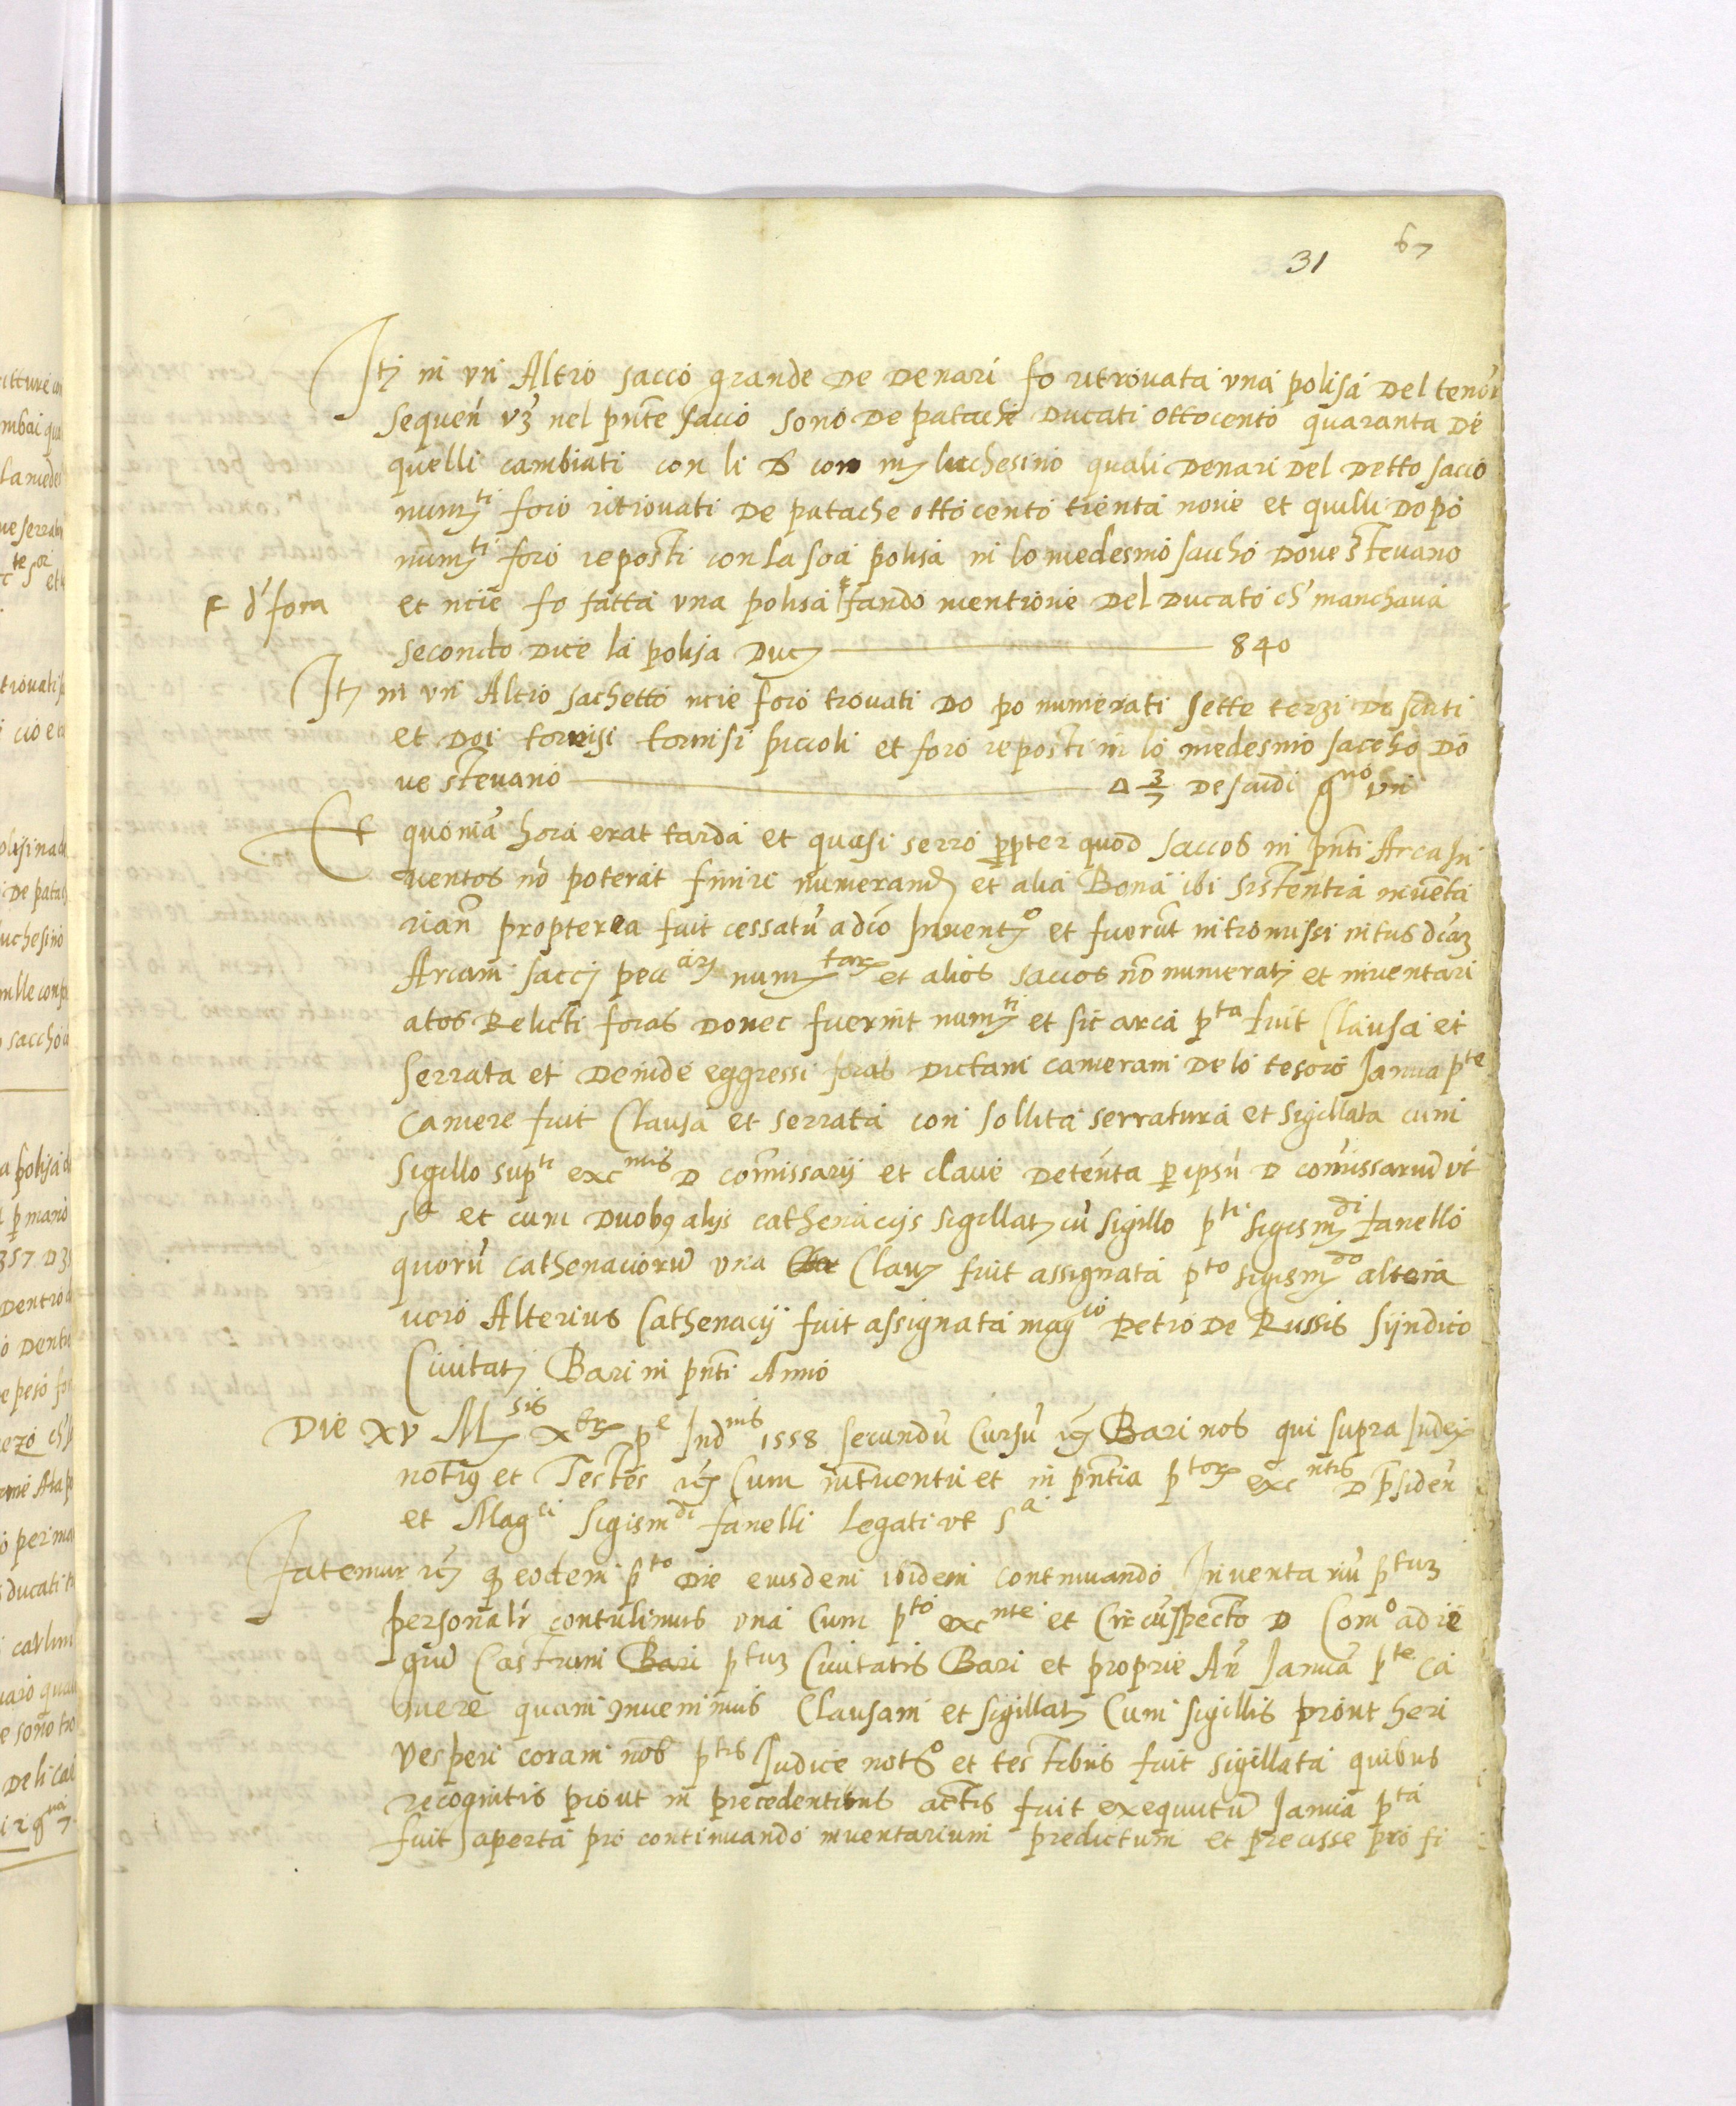 31 67
Itȝ in un Altro sacco grande de denari fo ritrovata una polisa del tenor
sequen̄ vȝ nel pn̄te sacco sono de patache ducati ottocento quaranta de
quelli cambiati con li D con luchesino quali denari del detto sacco
num^ti foro ritrovati de patache ottocento trenta nove et quelli dopo
num^ti foro reposti con la soa polisa in lo medesmo saccho dove stevano
d'fora
et ncie fo fatta una polisa fando mentione del ducato ch' manchava
secondo dice la polisa duc 840
Itȝ in un Altro sachetto ncie foro trovati do po numerati sette terzi de scuti
et doi tornisi tornisi piccoli et foro reposti in lo medesmo saccho do
ve stevano ∆ 3/7 de scudi g^no un
Et quonia hora erat tarda et quasi serro ppter quod saccos in pn̄ti Arca In
ventos nō poterāt finiri numerand et alia Bona ibi sistentia inventa
rian̄ propterea fuit cessatū a dcō Invent^o et fuerūt intromissi intus dcāȝ
Arcam sacci pecc num^tor et alios saccos nō numerat et inventari
atos Relicti foras donec fuerint num^ti et sic arca p^ta fuit Clausa et
serrata et deinde eggressi foras dictam cameram de lo tesoro Ianua p^te
Camere fuit Clausa et serrata con sollita serratura et sigillata cum
sigillo sup^ti exc^ntis D com̄issarij et clave detenta p ipsū D com̄issariū ut
s^a et cum duobȝ alijs cathenacijs sigillat cū sigillo p^ti sigism^di fanello
quorū cathenaciorū una Clav fuit assignata p^to sigism^do altera
vero Alterius Cathenacij fuit assignata mag^co Petro de Russis Sijndico
Civitat Bari in pn̄ti Anno
Die XV M^sis X^br p^e Ind^nis 1558 secundū Cursū Bari nos qui supra Iudex
notȝ et Testes Cum interventu et in pn̄tia p^tor exc^ntis D p̄siden̄
et Mag^ci Sigism^di fanelli Legati ut s^a
Fatemur q eodem p^to die eiusdem ibidem continuando Inventariū p^tuȝ
personalr̄ contulimus una Cum p^to exc^nte et Circūspecto D Com^o ad re
giū Castrum Bari p^tuȝ Civitatis Bari et proprie An̄ Ianuā p^te Ca
mere quam invenimus Clausam et sigillat Cum sigillis prout heri
vesperi coram nob p^tis Iudice not^o et testibus fuit sigillata quibus
recognitis prout in precedentibus actis fuit exequutū Ianua p^ta
fuit aperta pro continuando inventarium predictum et precisse pro fi